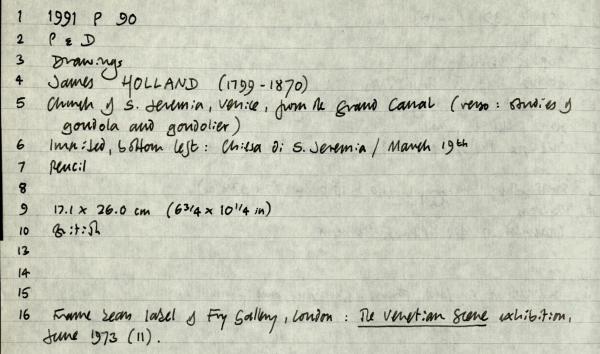 1 1991 P 90
2 P & D
3 Drawings
4 James HOLLAND (1799-1870)
5 Church of S. Jeremia, Venice, from the Grand Canal (verso: studies of
gondola and gondolier)
6 Inscribed, bottom left: Chiesa di S. Jeremia / March 19th
7 Pencil
8
9 17.1 x 26.0 cm (6 3/4 x 10 1/4 in)
10 British
13
14
15
16 Frame bears label of Fry Gallery, London: The Venetian Scene exhibition,
June 1973 (11).